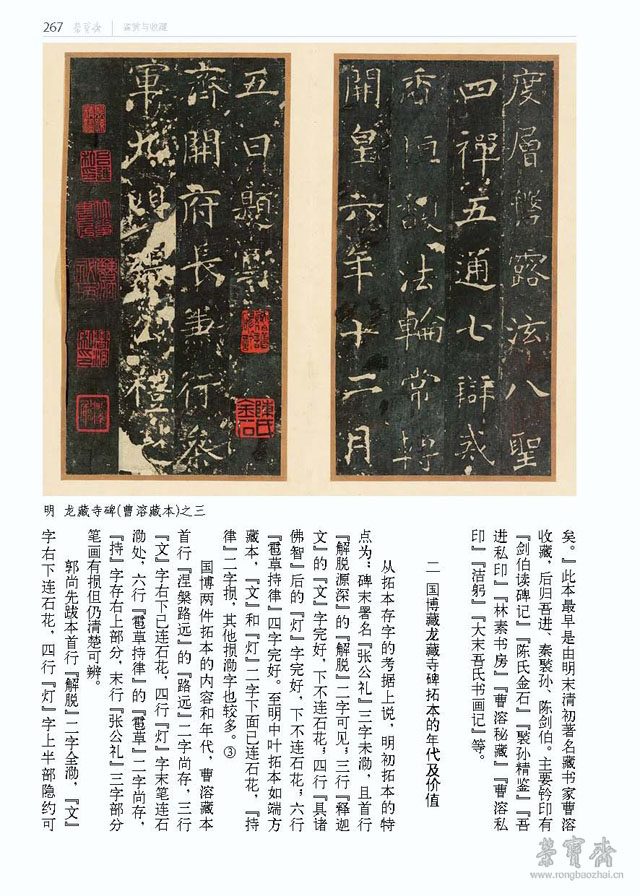 267 荣宝斋 鉴赏与收藏
四禪五通七辯戒
香恒馥法輪常轉
開皇六年十二月
五日題寫
齊開府長兼行參
軍九門張公禮
陳氏金石
明 龙藏寺碑(曹溶藏本)之三
矣。』此本最早是由明末清初著名藏书家曹溶
收藏，后归吾进、秦褧孙、陈剑伯。主要钤印有
『剑伯读碑记』『陈氏金石』『褧孙精鉴』『吾
进私印』『林素书房』『曹溶秘藏』『曹溶私
印』『洁躬』『大末吾氏书画记』等。
二 国博藏龙藏寺碑拓本的年代及价值
从拓本存字的考据上说，明初拓本的特
点为：碑末署名『张公礼』三字未泐，且首行
『解脱源深』的『解脱』二字可见；三行『释迦
文』的『文』字完好，下不连石花；四行『具诸
佛智』后的『灯』字完好，下不连石花；六行
『雹草持律』四字完好。至明中叶拓本如端方
藏本，『文』和『灯』二字下面已连石花，『持
律』二字损，其他损泐字也较多。③
国博两件拓本的内容和年代，曹溶藏本
首行『涅槃路远』的『路远』二字尚存，三行
『文』字右下已连石花，四行『灯』字末笔连石
泐处，六行『雹草持律』的『雹草』二字尚存，
『持』字存右上部分，末行『张公礼』三字部分
笔画有损但仍清楚可辨。
郭尚先跋本首行『解脱』二字全泐，『文』
字右下连石花，四行『灯』字上半部隐约可
榮寶齋
www.rongbaozhai.cn